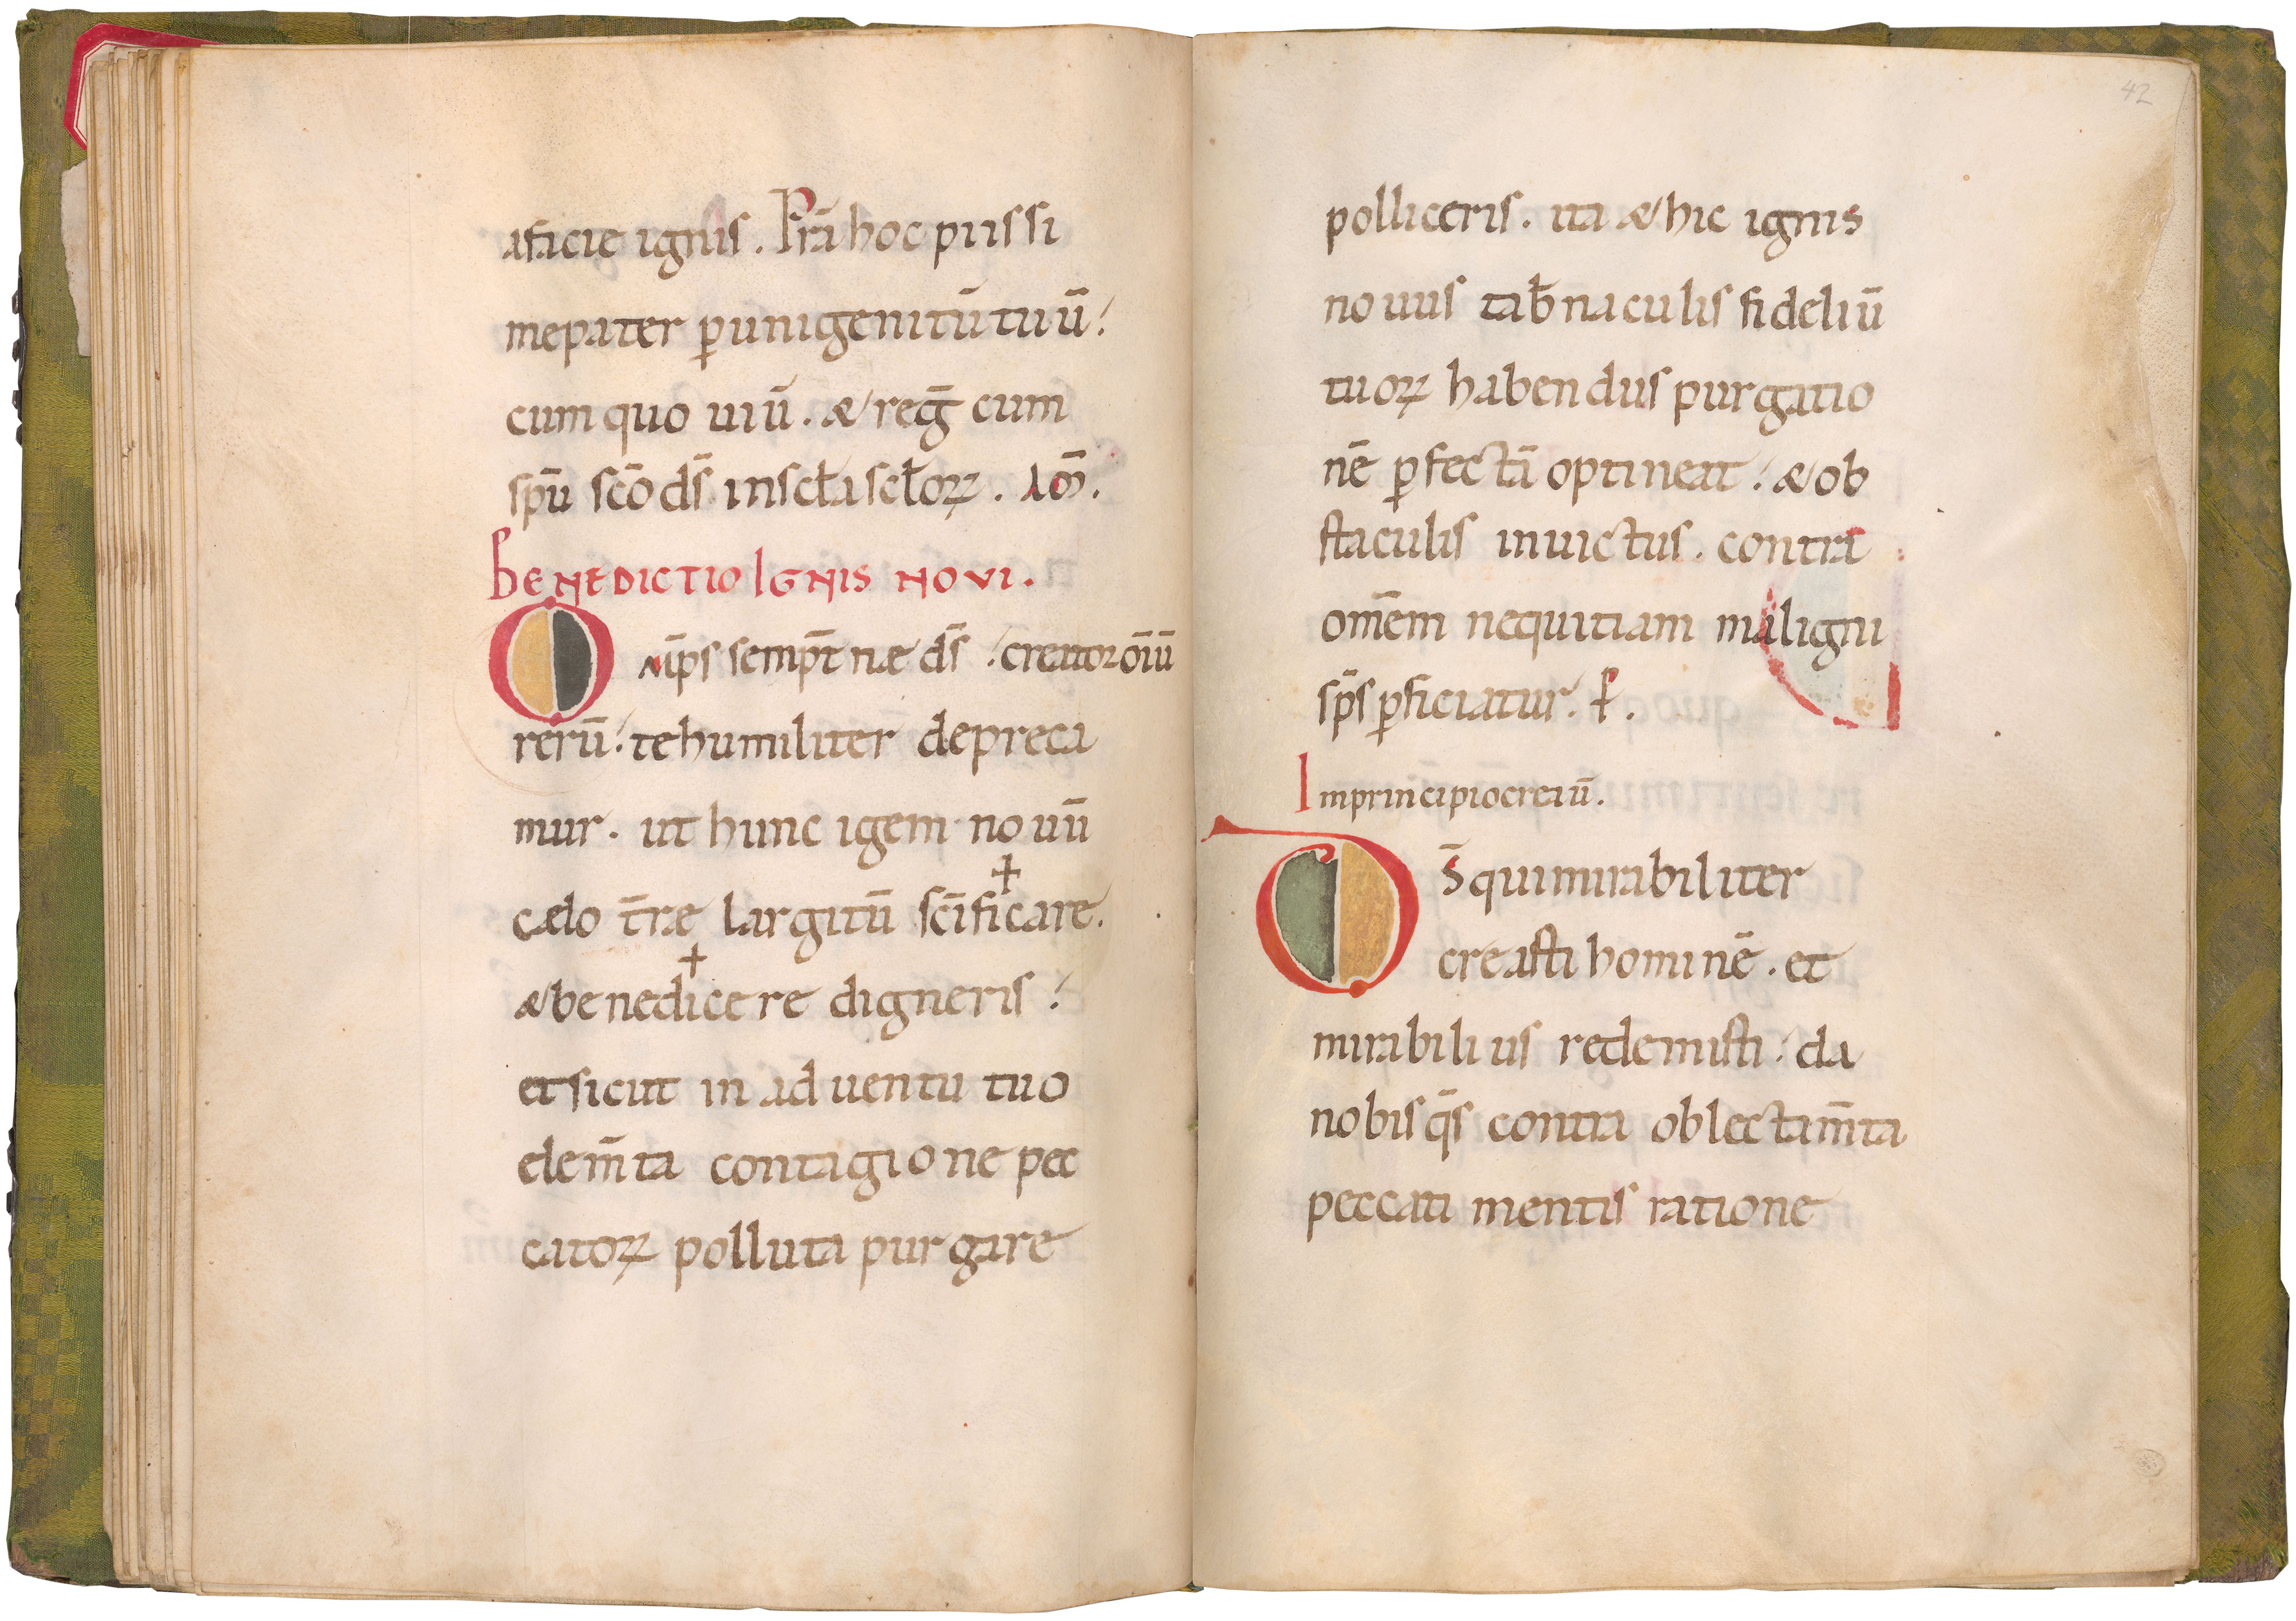 afacie ignis. Prā hoc piissi
mepater ꝑunigenitū tuū.
cum quo uiū. & reḡ cum
sp̄u sc̄o ds̄ insc̄ła sc̄łoꝝ. am̄.
Benedictio Ignis novi.
Om̄ps semp̄t næ ds̄. creator oīū
rerū. te humiliter depreca
mur. ut hunc igem nouū
cælo t̄ræ largitū sc̄ificare.
& benedicere digneris.
et sicut in aduentu tuo
elem̄ta contagione pec
catoꝝ polluta purgare
42
polliceris. ita & hic ignis
nouus tab̄naculis fideliū
tuoꝝ habendus purgatio
nē ꝑfectā optineat. & ob
staculis inuictus. contra
om̄em nequitiam maligni
sp̄s ꝑficiatur. ꝑ.
Imprincipio creaū.
Ds̄ qui mirabiliter
creasti hominē. et
mirabilius redemisti. da
nobis qs̄ contra oblectam̄ta
peccati mentis ratione